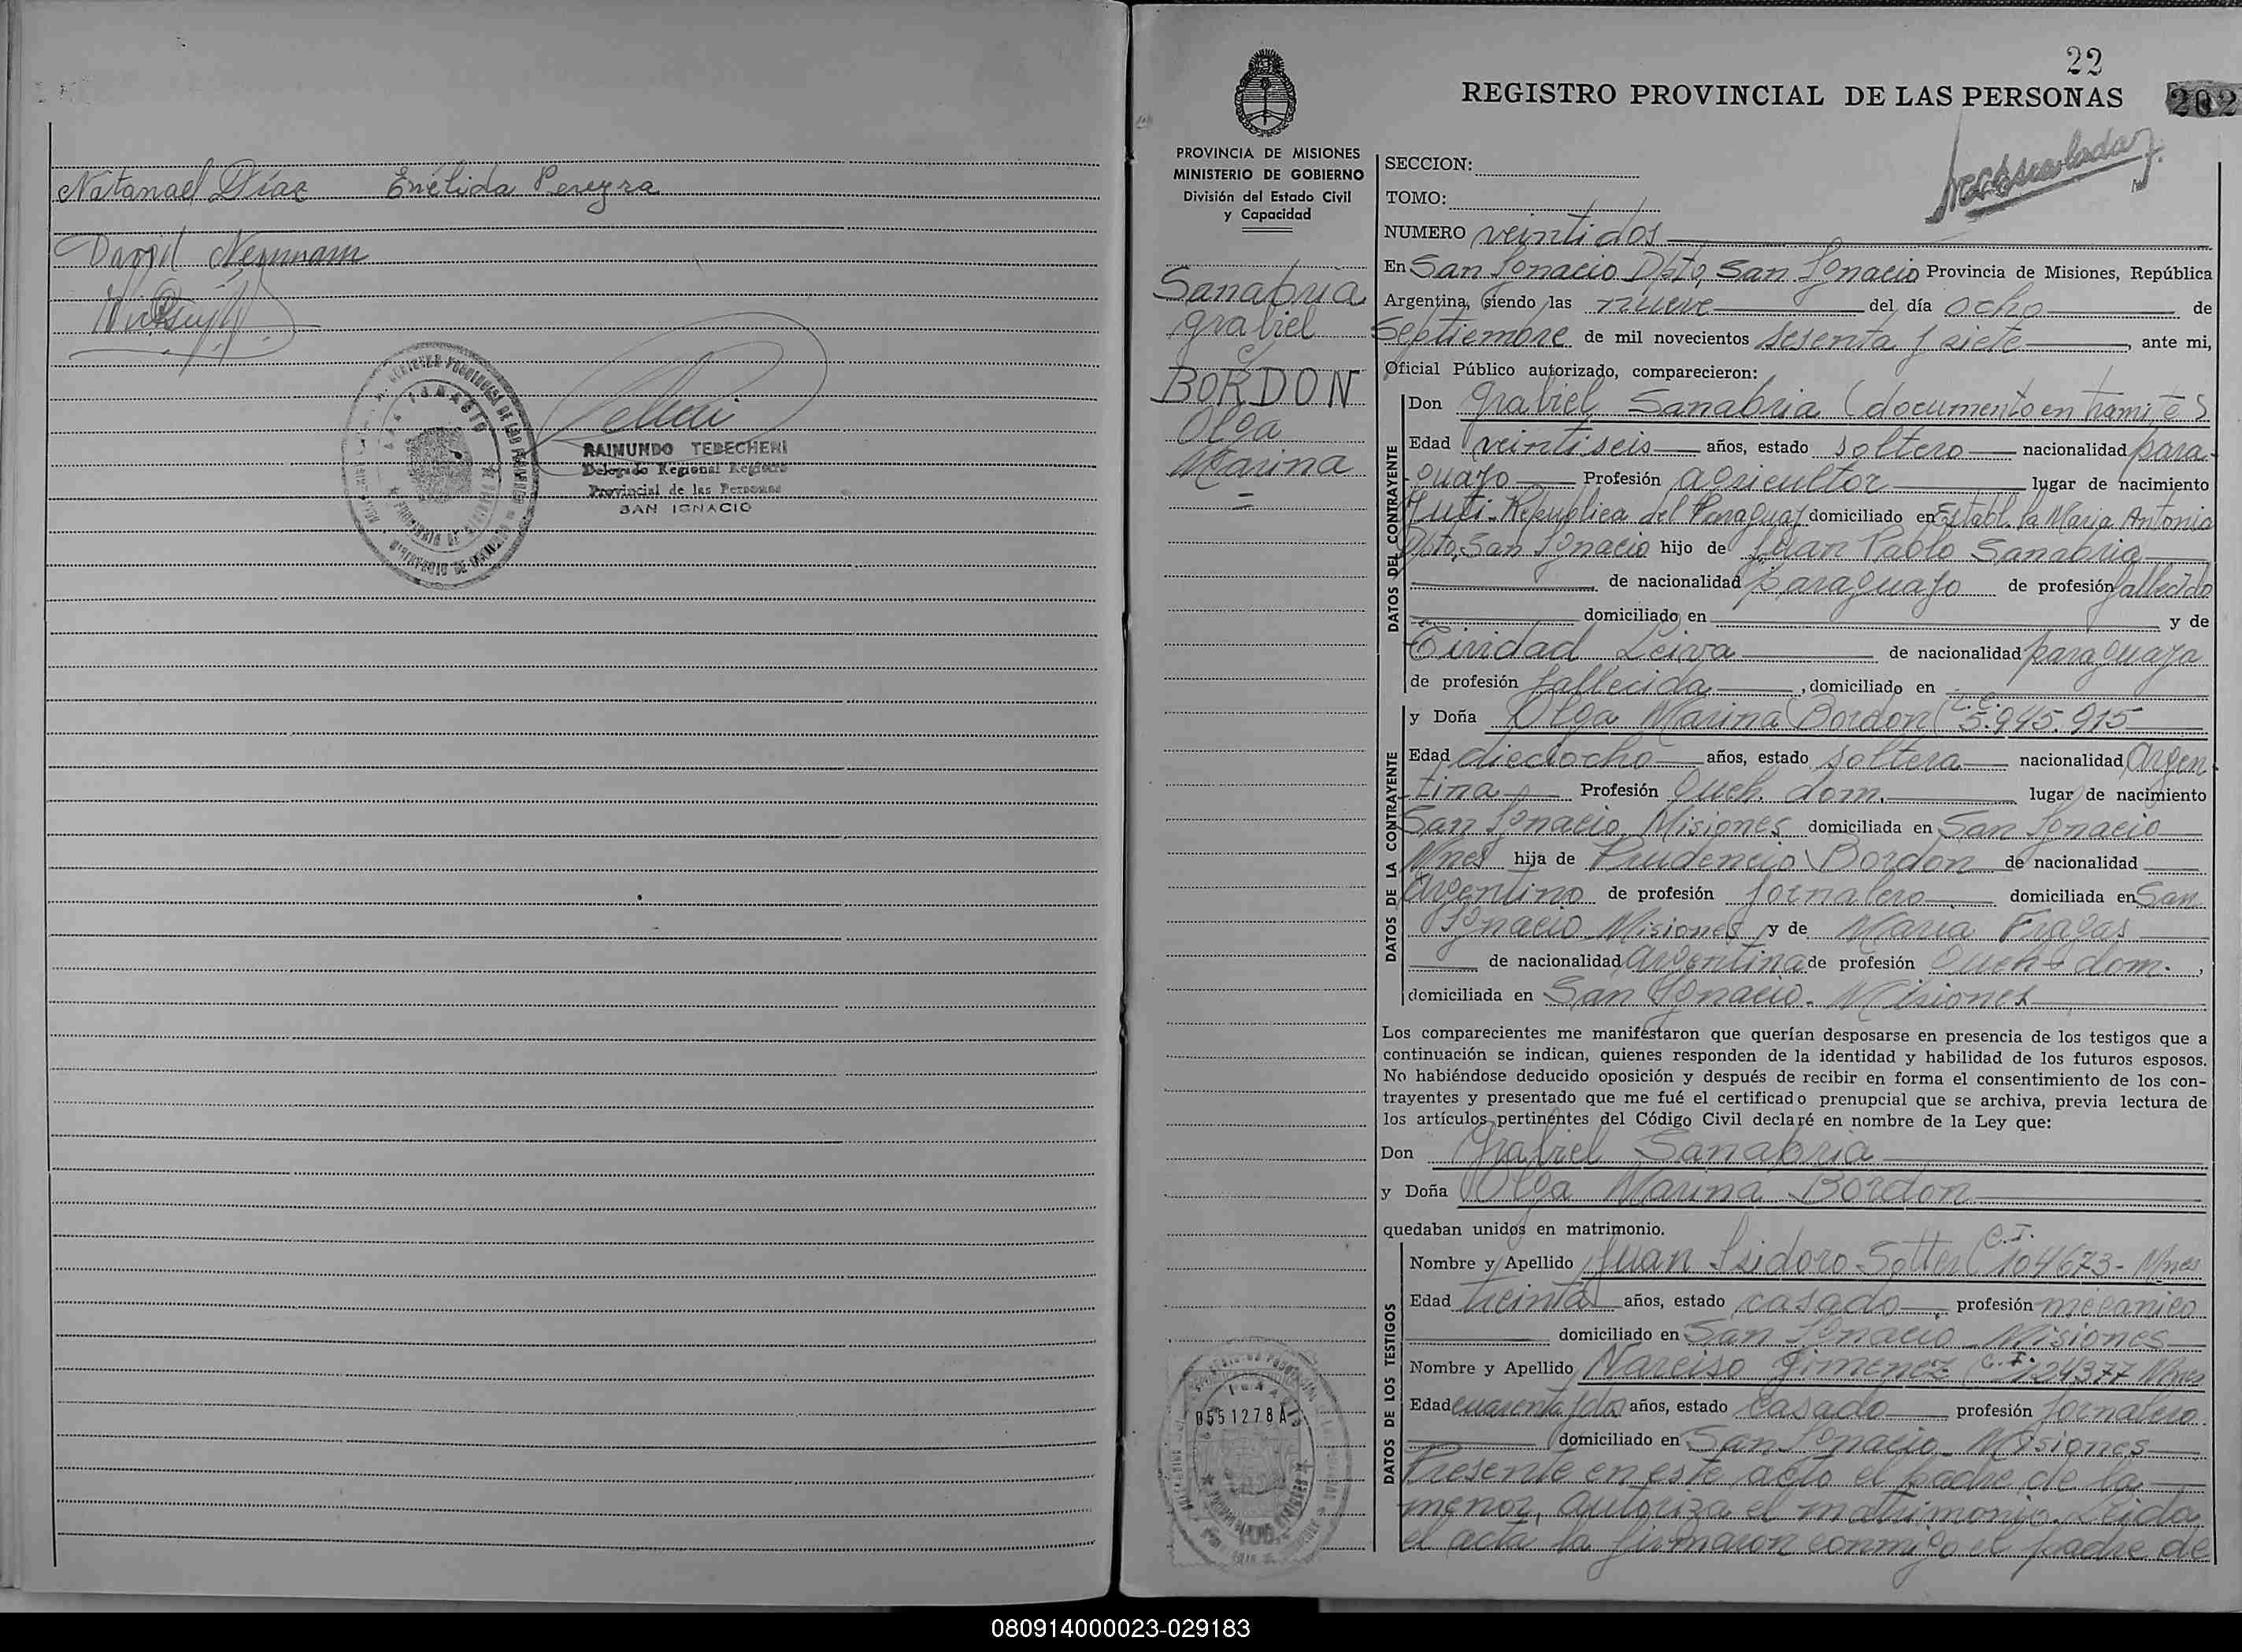 Natanael Díaz Enélida Pereyra
David Neumann
RAIMUNDO TEDECHERI
Delegado Regional Registro
Provincial de las Personas
SAN IGNACIO
22
REGISTRO PROVINCIAL DE LAS PERSONAS 202
PROVINCIA DE MISIONES
MINISTERIO DE GOBIERNO
División del Estado Civil
y Capacidad
Sanabria
Grabiel
y
BORDON
Olga
Marina
=
0551278A
SECCION:
TOMO:
NUMERO veintidos
En San Ignacio Dpto, San Ignacio Provincia de Misiones, República
Argentina, siendo las nueve del día ocho de
Septiembre de mil novecientos sesenta y siete, ante mi,
Oficial Público autorizado, comparecieron:
DATOS DEL CONTRAYENTE
Don Grabiel Sanabria (documento en tramite)
Edad veintiseis años, estado soltero nacionalidad para-
guayo Profesión agricultor lugar de nacimiento
Yuti-Republica del Paraguay domiciliado en Establ. la Maria Antonia
Dpto, San Ignacio hijo de Juan Pablo Sanabria
de nacionalidad paraguayo de profesión fallecido
domiciliado en y de
Tinidad Leiva de nacionalidad paraguaya
de profesión fallecida, domiciliado en
DATOS DE LA CONTRAYENTE
y Doña Olga Marina Bordon (L.C. 5.945.915
Edad dieciocho años, estado soltera nacionalidad Argen
tina Profesión Queh. dom. lugar de nacimiento
San Ignacio Misiones domiciliada en San Ignacio
Mnes hija de Prudencio Bordon de nacionalidad
Argentino de profesión Jornalero domiciliada en San
Ignacio Misiones y de Maria Fragas
de nacionalidad argentina de profesión Queh- dom.,
domiciliada en San Ignacio- Misiones
Los comparecientes me manifestaron que querían desposarse en presencia de los testigos que a
continuación se indican, quienes responden de la identidad y habilidad de los futuros esposos.
No habiéndose deducido oposición y después de recibir en forma el consentimiento de los con-
trayentes y presentado que me fué el certificado prenupcial que se archiva, previa lectura de
los artículos pertinentes del Código Civil declaré en nombre de la Ley que:
Don Grabiel Sanabria
y Doña Olga Marina Bordon
quedaban unidos en matrimonio.
DATOS DE LOS TESTIGOS
Nombre y Apellido Juan Isidoro Sotter (C.I. 104673- Mnes
Edad treinta años, estado casado, profesión mecanico
domiciliado en San Ignacio Misiones
Nombre y Apellido Narciso Gimenez (C.I. 124377 Mnes
Edad cuarenta y dos años, estado casado profesión Jornalero
domiciliado en San Ignacio- Misiones
Presente en este acto el padre de la
menor, autoriza el matrimonio. Leida
el acta la firmaron conmigo el padre de
080914000023-029183